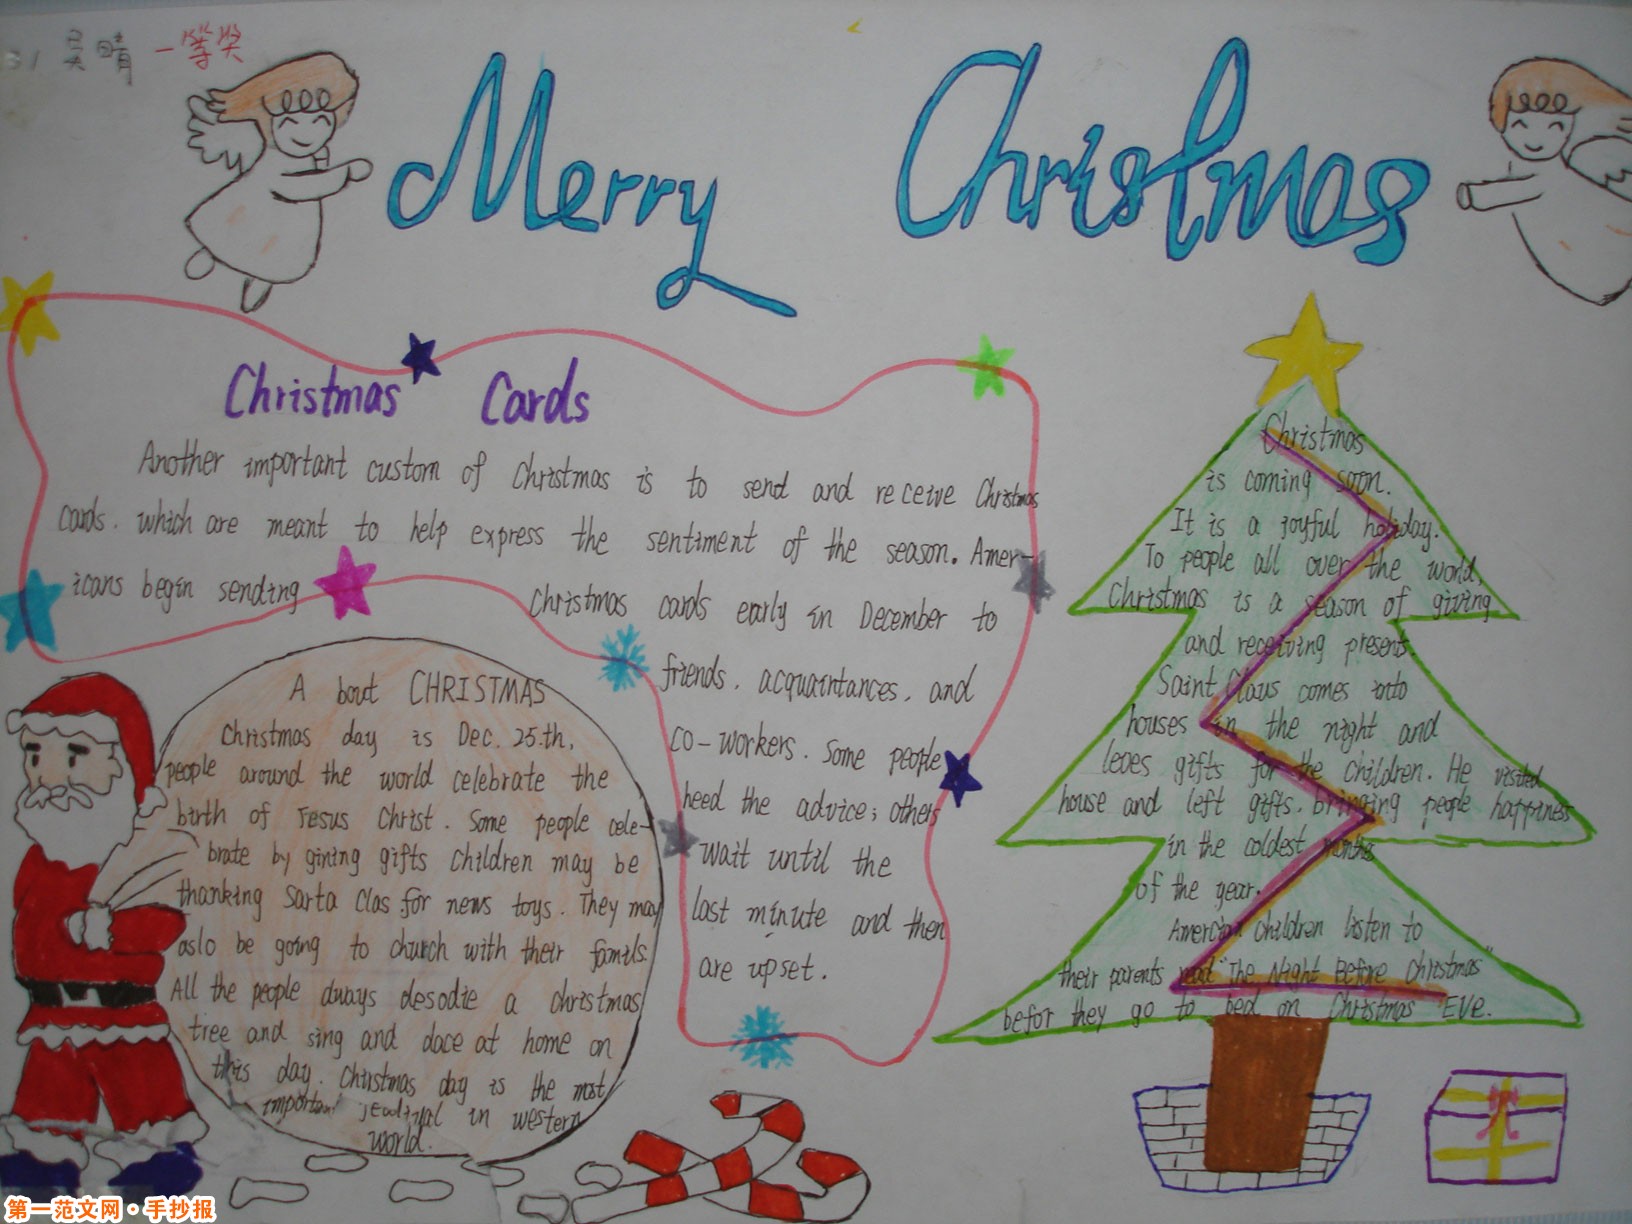 31 吴晴 一等奖
Merry Christmas
Christmas Cards
Another important custom of Christmas is to send and receive Christmas
cards. which are meant to help express the sentiment of the season. Amer-
icans begin sending
Christmas cards early in December to
friends, acquaintances, and
co-workers. Some people
heed the advice; others
wait until the
last minute and then
are upset.
A bout CHRISTMAS
Christmas day is Dec. 25.th,
people around the world celebrate the
birth of Jesus Christ. Some people cele-
brate by gining gifts children may be
thanking Sarta Clas for news toys. They may
aslo be going to church with their famils.
All the people always desodie a christmas
tree and sing and dace at home on
this day. Christmas day is the most
important in western
world.
Christmas
is coming soon.
It is a joyful holiday.
To people all over the world,
Christmas is a season of giving
and receiving presents.
Saint Claus comes into
houses in the night and
leves gifts for the children. He visited
house and left gifts. bringing people happiness
in the coldest months
of the year.
American children listen to
their parents read "The Night Before Christmas"
befor they go to bed on Christmas EVe.
第一范文网·手抄报